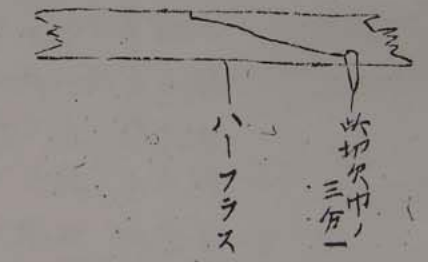 此切欠巾ノ
三分一
ハーフラス